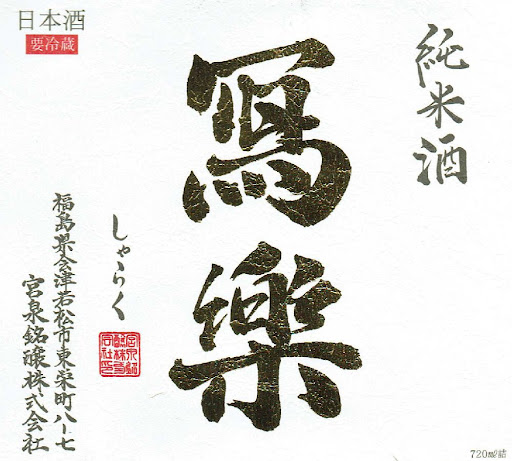 日本酒
要冷蔵
純米酒
寫樂
しゃらく
福島県会津若松市東栄町八-七
宮泉銘醸株式会社
720㎖詰